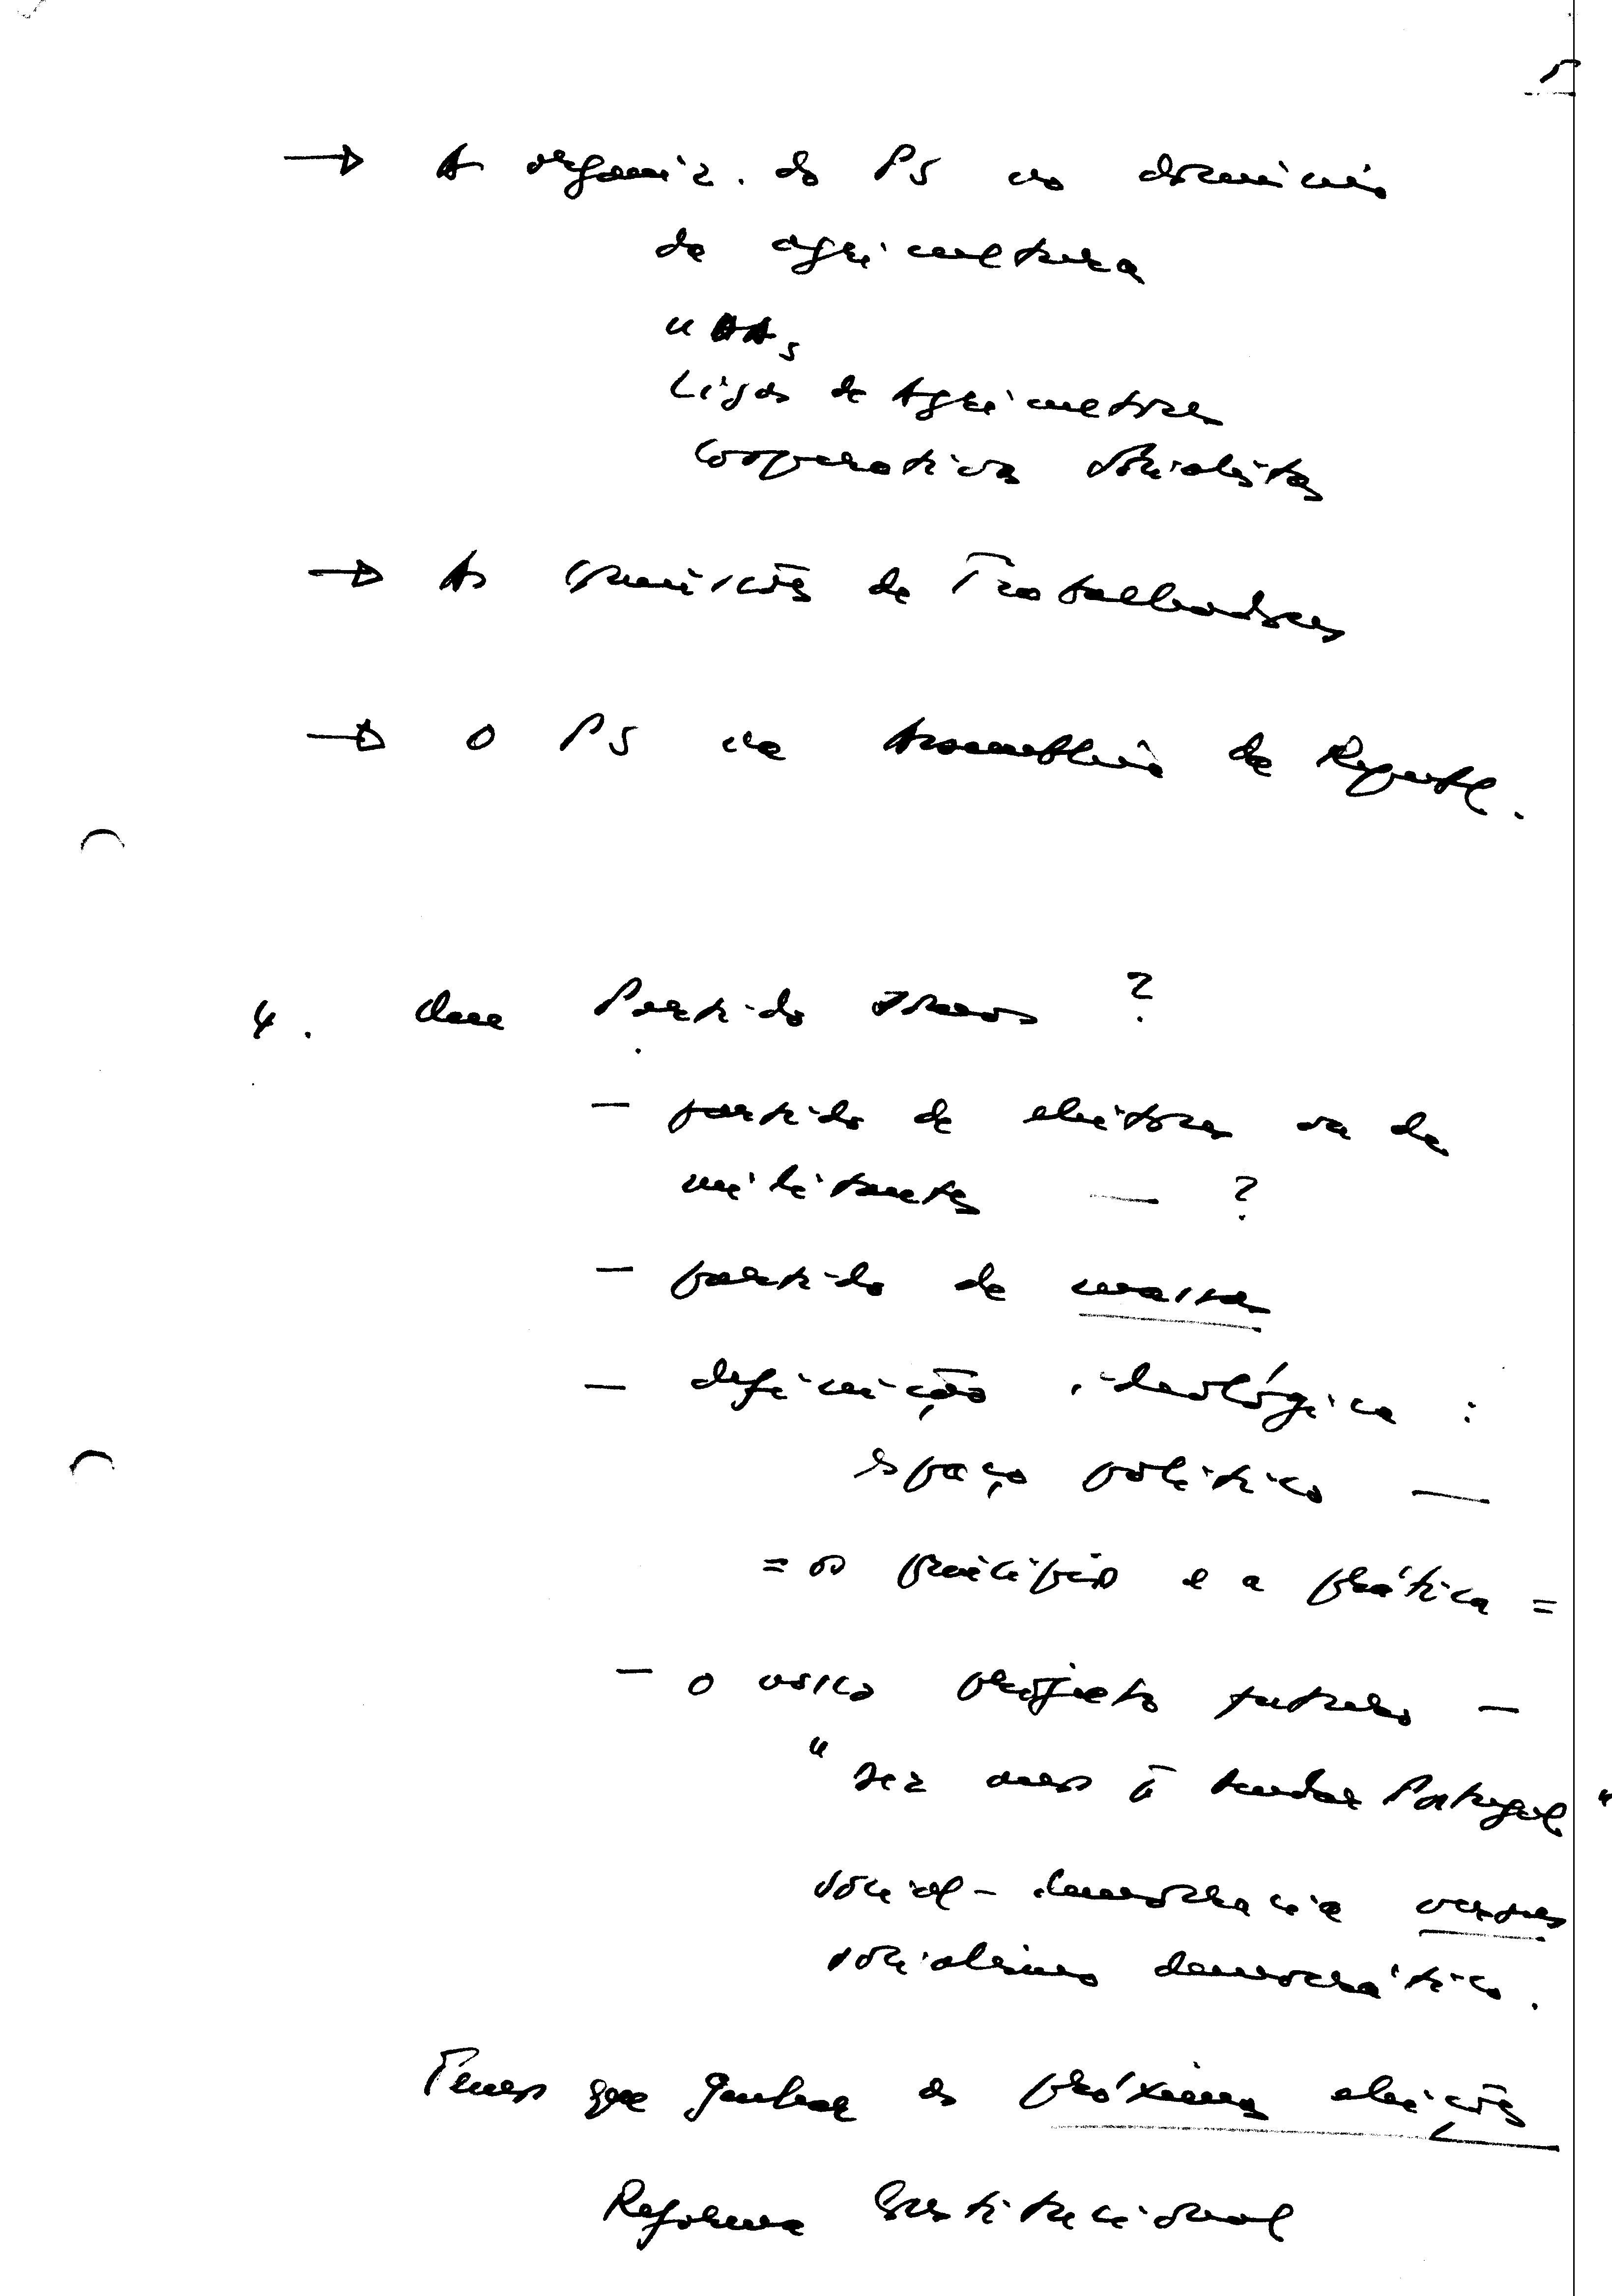 5
→ A organiz. do PS no domínio
da agricultura
UAAs
Ligas de Agricultores
Cooperativas socialistas
→ As Comissões de Trabalhadores
→ O PS na Assembleia da Repúbl.
4. Que Partido somos ?
— partido de eleitores ou de
militantes — ?
— partido de massas
— definição ideológica :
espaço político —
= os princípios e a prática =
— o nosso projecto futuro —
"
Portugal "
social-democracia versus
socialismo democrático.
Temos que ganhar as próximas eleições
Reforma Constitucional